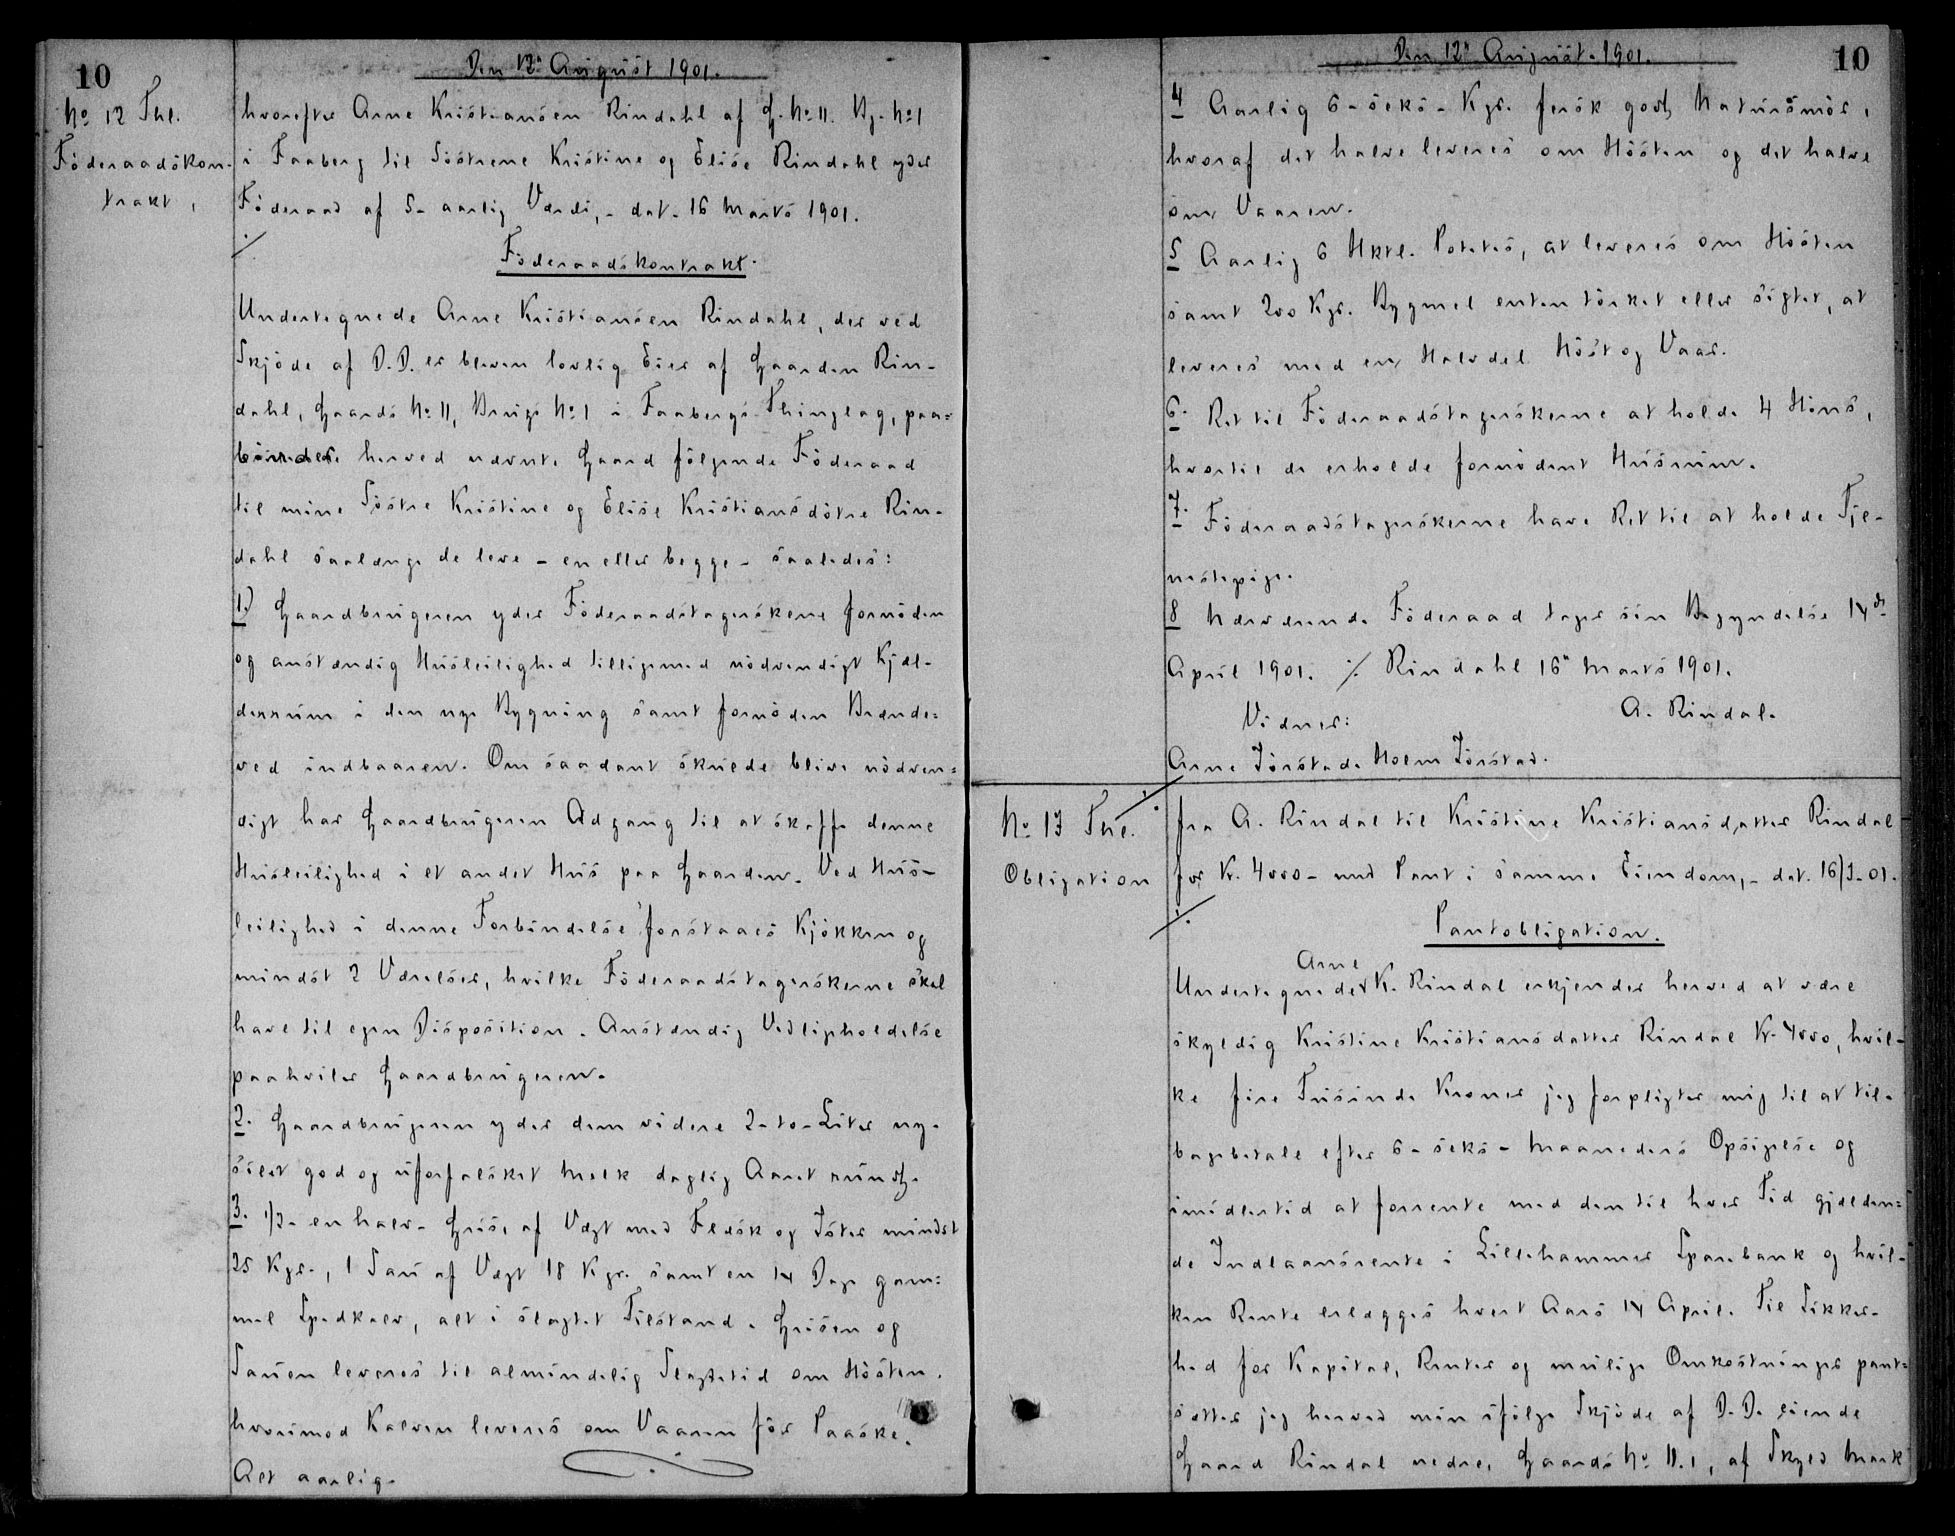 10
Den 12te August 1901.
No 12 Thl.
Föderaadskon-
trakt,
hvorefter Arne Kristiansen Rindahl af G. No 11. Bg. No 1
i Faaberg til Søstrene Kristine og Elise Rindahl yder
Föderaad af 5-aarlig Værdi, - dat. 16 Marts 1901.
Föderaadskontrakt.
Undertegnede Arne Kristiansen Rindahl, der ved
Skjöde af D.D. er bleven lovlig Eier af Gaarden Rin-
dahl, Gaards No 11, Brugs No 1 i Faabergs Thinglag, paa=
byrder herved nævnte Gaard fölgende Föderaad
til mine Söstre Kristine og Elise Kristiansdötre Rin-
dahl saalænge de leve - en eller begge - saaledes:
1.) Gaardbrugeren yder Föderaadstagerskerne fornöden
og anstændig Husleilighed tilligemed nödvendigt Kjæl-
derrum i den nye Bygning samt fornöden Brænde=
ved indbaaren. Om saadant skulde blive nödven=
digt har Gaardbrugeren Adgang til at skaffe denne
Husleilighed i et andet Hus paa Gaarden. Ved Hus-
leilighed i denne Forbindelse forstaaes Kjökken og
mindst 2 Værelser, hvilke Föderaadstagerskerne skal
have til egen Disposition. Anstændig Vedligeholdelse
paahviler Gaardbrugeren.
2. Gaardbrugeren yder dem videre 2-to-Liter ny-
silet god og uforfalsket Melk daglig Aaret rundt.
3. 1/2- en halv- Gris, af Vægt med Flesk og Ister mindst
25 Kgr., 1 Sau af Vægt 18 Kgr. samt en 14 Dage gam=
mel Spedkalv, alt i slagtet Tilstand. Grisen og
Sauen leveres til almindelig Slagtetid om Hösten.
hvorimod Kalven leveres om Vaaren för Paaske.
Alt aarlig.
Den 12te August 1901.
10
4 Aarlig 6-seks- Kgr. fersk godt Natursmör,
hvoraf det halve leveres om Hösten og det halve
om Vaaren.
5 Aarlig 6 Hktl. Potetes, at leveres om Hösten
samt 200 Kgr. Bygmel enten törket eller sigtet, at
leveres med en Halvdel Höst og Vaar.
6. Ret til Föderaadstagerskerne at holde 4 Höns,
hvortil de erholde fornödent Husrum.
7. Föderaadstagerskerne have Ret til at holde Tje-
nestepige.
8 Nærværende Föderaad tager sin Begyndelse 14de
April 1901. ./. Rindahl 16de Marts 1901.
A. Rindal.
Vidner:
Arne Jörstad. Holm Jörstad.
No 13 Thl.
Obligation
fra A. Rindal til Kristine Kristiansdatter Rindal
for Kr. 4000- med Pant i samme Eiendom, - dat. 16/3-01.
./.
Pantobligation.
Arne
Undertegnede K. Rindal erkjender herved at være
skyldig Kristine Kristiansdatter Rindal Kr. 4000, hvil-
ke fire Tusinde Kroner jeg forpligter mig til at til-
bagebetale efter 6-seks- Maaneders Opsigelse og
imidlertid at forrente med den til hver Tid gjælden=
de Indlaansrente i Lillehammer Sparebank og hvil-
ken Rente erlægges hvert Aars 14 April. Til Sikker-
hed for Kapital, Renter og mulige Omkostninger pant=
sætter jeg herved min ifölge Skjöde af D.D. eiende
Gaard Rindal nedre, Gaards No 11.1, af Skyld Mark